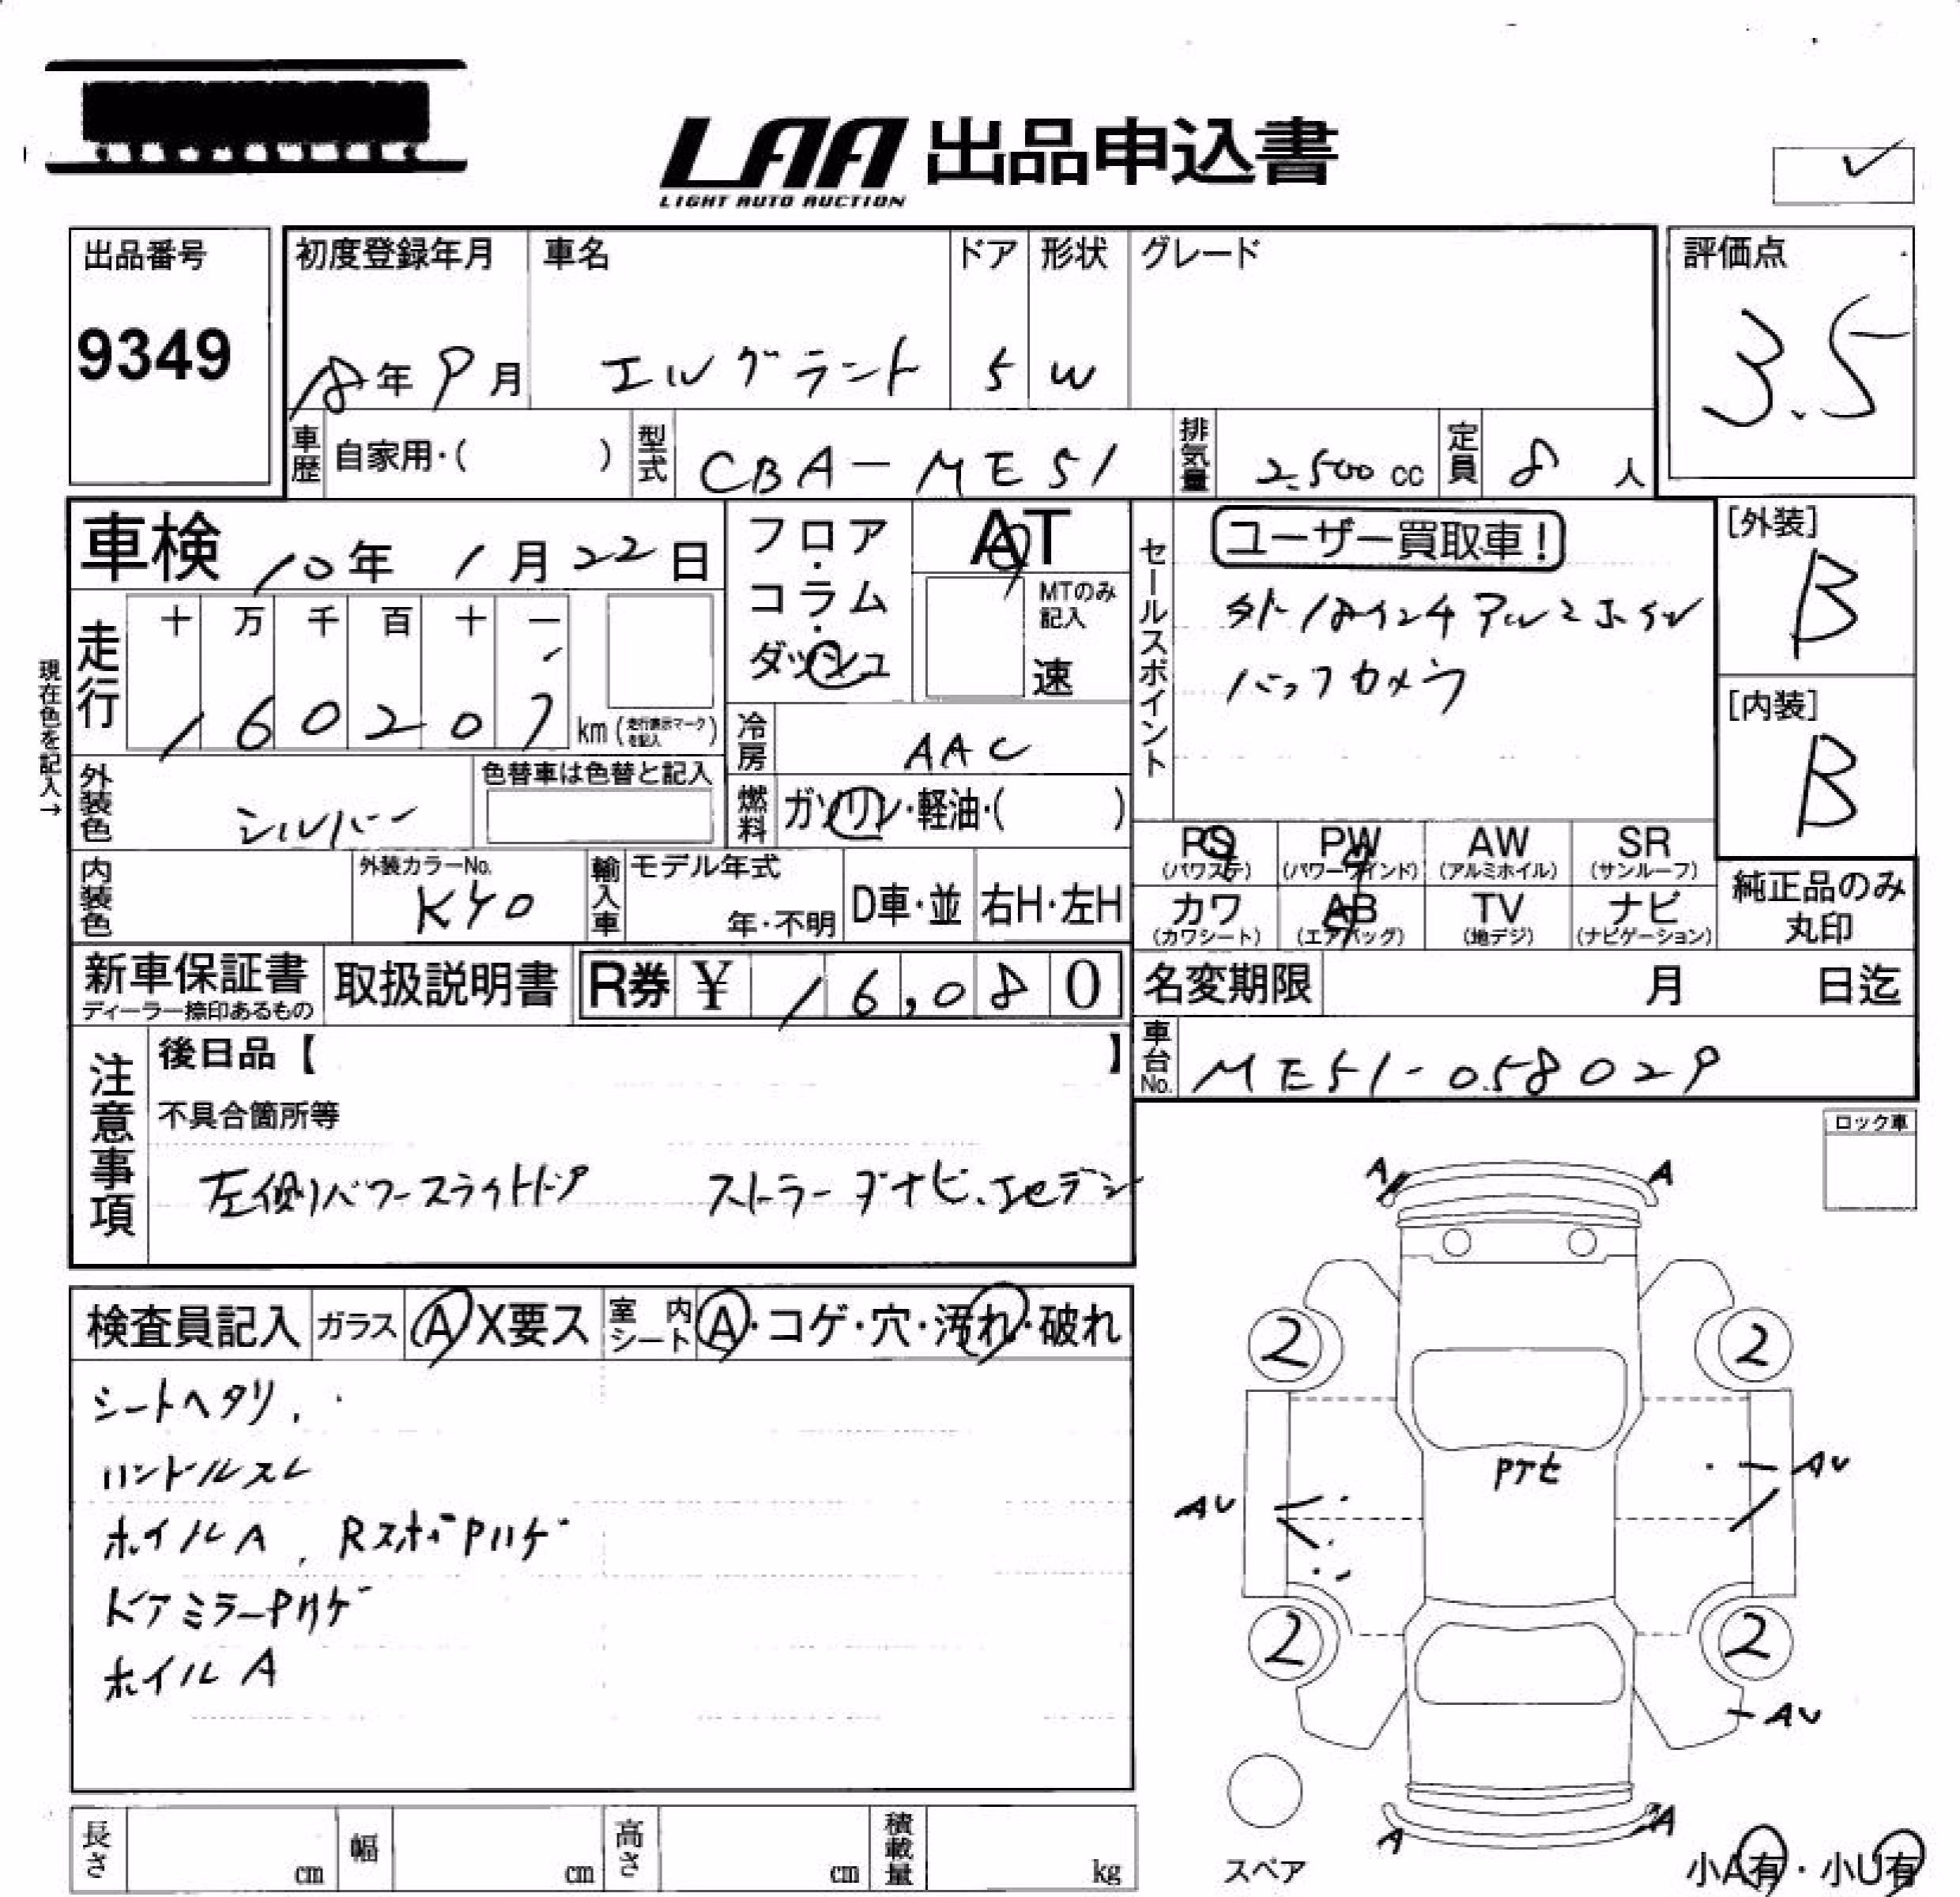 LAA 出品申込書
LIGHT AUTO AUCTION
出品番号
9349
初度登録年月
18年9月
車名
エルグランド
ドア
5
形状
W
グレード
評価点
3.5
車歴 自家用・( )
型式 CBA-ME51
排気量 2,500 cc
定員 8 人
車検 10年 1月22日
フロア・コラム・ダッシュ
AT
MTのみ記入
速
セールスポイント
ユーザー買取車!
バックカメラ
[外装]
B
[内装]
B
現在色を記入→
走行
十 万 千 百 十 一
1 6 0 2 0 7 km (走行表示マークを記入)
冷房 AAC
外装色 シルバー
色替車は色替と記入
燃料 ガソリン・軽油・( )
PS (パワステ) PW (パワーウインド) AW (アルミホイル) SR (サンルーフ)
カワ (カワシート) AB (エアバッグ) TV (地デジ) ナビ (ナビゲーション)
純正品のみ丸印
内装色
外装カラーNo.
KY0
輸入車 モデル年式
年・不明
D車・並
右H・左H
新車保証書
ディーラー捺印あるもの
取扱説明書
R券 ¥ 16,080
名変期限 月 日迄
車台No. ME51-058029
注意事項
後日品【 】
不具合箇所等
左側パワースライドドア ストラーダナビ、
ロック車
検査員記入 ガラス A X要ス 室内シート A・コゲ・穴・汚れ・破れ
シートヘタリ、
ハンドルスレ
ホイルA、RスポイラーPハゲ
ドアミラーPハゲ
ホイルA
A A
2 2
Pアセ
AU
AU
2 2
AU
A A
スペア
小A有・小U有
長さ cm 幅 cm 高さ cm 積載量 kg